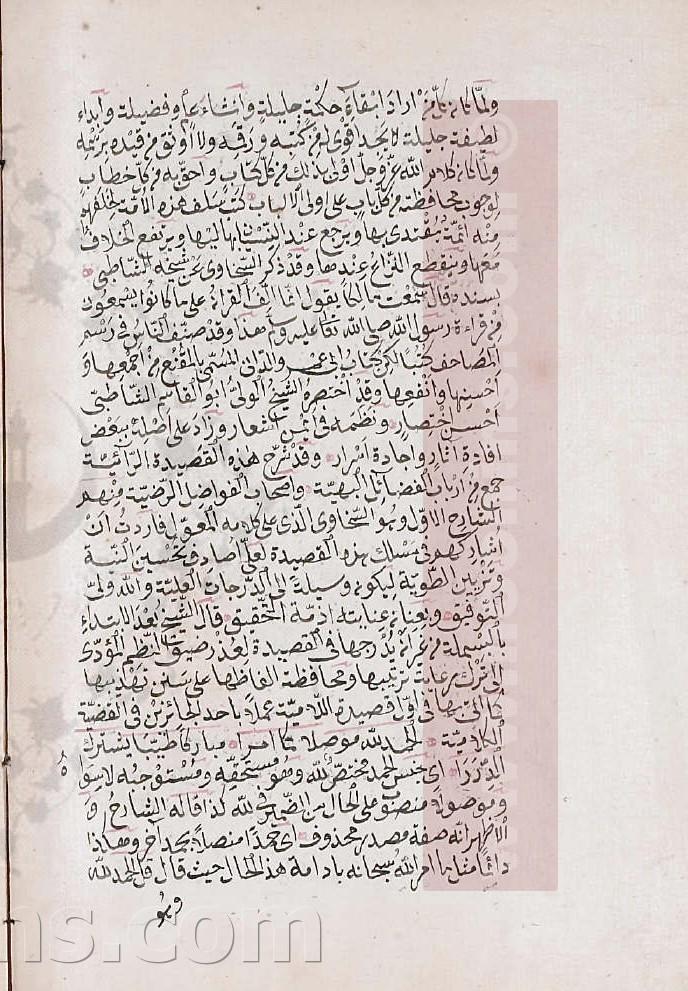 ولما كان من اراد ابقاء حكمة جليلة وانشاء علم وفضيلة وابداء
لطيفة جليلة لا يجد اقوى له من كتبه ورقه ولا اوثق من قيده برسمه
ولما كان كلام الله عز وجل اولى بذلك من كل كتاب واحق به من كل خطاب
لوجوب محافظته من كل باب على اولى الالباب كتب سلف هذه الامة لخلفهم
منه ائمة يقتدى بها ويرجع عند النسيان اليها ويرتفع الخلاف
معها وينقطع النزاع عندها وقد ذكر السخاوى عن شيخه الشاطبي
بسنده قال سمعت مالكا يقول انما الف القراءن على ما كانوا يسمعون
من قراءة رسول الله صلى الله تعالى عليه وسلم هذا وقد صنف الناس في رسم
المصاحف كتبا لكن كتاب ابى عمرو الدانى المسمى بالمقنع من اجمعها و
احسنها وانفعها وقد اختصره الشيخ الولى ابو القاسم الشاطبى
احسن اختصار ونظمه في ايمن اشعار وزاد على اصله ببعض
افادة اثار واجادة اسرار وقد شرح هذه القصيدة الرائية
جمع من ارباب الفضائل البهية واصحاب الفواضل الرضية منهم
الشارح الاول وهو السخاوى الذى على كلامه المعول فاردت ان
اشاركهم فى مسلك هذه القصيدة لعلى اصادف تحسين النية
وتزيين الطوية ليكون وسيلة لى الى الدرجات العلية والله ولى
التوفيق وبعنان عنايته ازمة التحقيق قال الشيخ بعد الابتداء
بالبسملة من غير ان يدرجها فى القصيدة لعذر ضيق النظم المؤدى
الى ترك رعاية ترتيبها ومحافظة الفاظها على سنن تهذيبها
كما اتى بها فى اول قصيدته اللامية عملا باحد الجائزين فى القضية
الكلامية الحمد لله موصولا كما امرا مباركا طيبا يستنزل
الدررا اى جنس الحمد مختص لله وهو مستحقه ومستوجبه لا سواه
وموصولا منصوب على الحال من الضمير فى لله كذا قاله الشارح و
الاظهر انه صفة مصدر محذوف اى حمدا متصلا بحمد آخر وهكذا
دائما مثل ما امر الله سبحانه بادامة هذا الحال حيث قال قل الحمد لله
وهو
ns.com